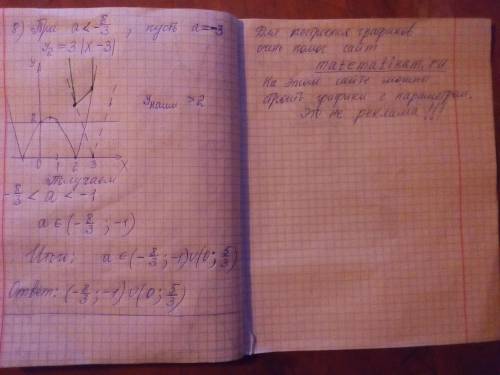 8) При a < -8/3, пусть a = -3
y₂ = 3|x-3|
y
yнаим > 2
2
0 1 2 3 X
Получаем
-8/3 < a < -1
a ∈ (-8/3; -1)
Итого: a ∈ (-8/3; -1) ∪ (0; 5/3)
Ответ: (-8/3; -1) ∪ (0; 5/3)
Для построения графиков
очень помог сайт
matematikam.ru
На этом сайте можно
строить графики с параметром.
Это не реклама!!!